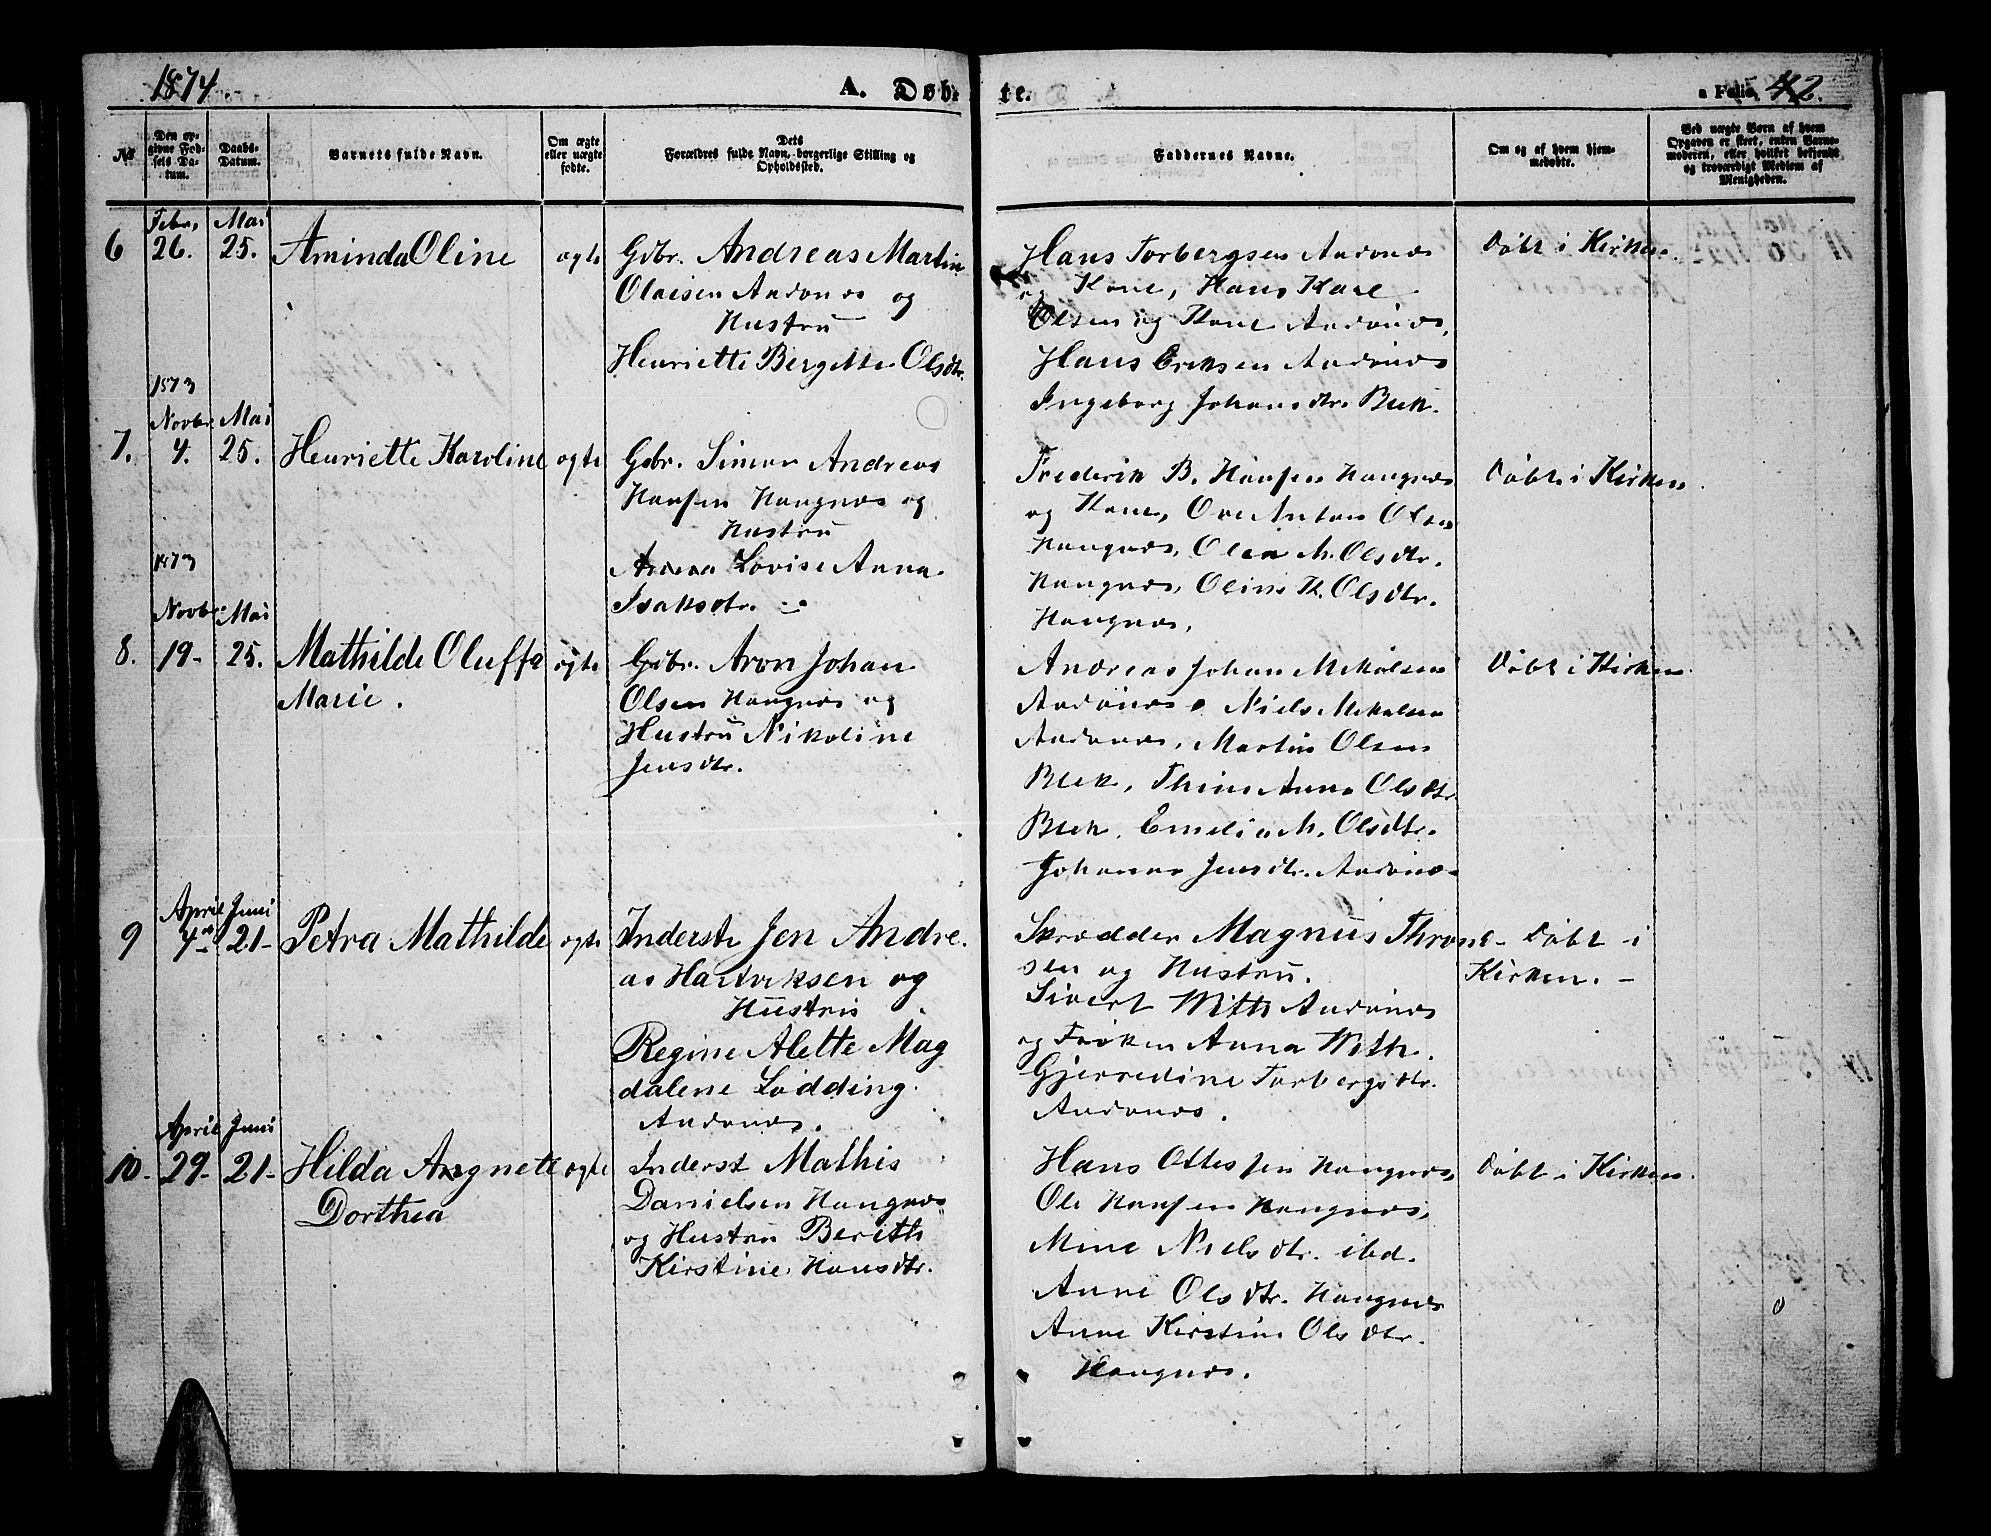 1874.
A. Døb-
te.
a Folio 42.
№
Den op-
givne Fød-
sels Da-
tum.
Daabs-
Datum.
Barnets fulde Navn.
Om ægte
eller uægte
fødte.
Dets
Forældres fulde Navn, borgerlige Stilling og
Opholdssted.
Faddernes Navne.
Om og af hvem hjem-
medøbte.
Ved uægte Børn af hvem
Opgaven er skeet, enten Barne-
moderen, eller hvilket bekjendt
og troværdigt Medlem af
Menigheden.
6
Febr.
26.
Mai
25.
Aminda Oline
ægte
Gdbr. Andreas Martin
Olaisen Andønæs og
Hustru
Henriette Bergitte Olsdtr.
Hans Torbergsen Andønæs
og Kone, Hans Karl
Olsen og Kone Andønæs,
Hans Eriksen Andønæs
Ingeborg Johansdtr. Blek.
Døbt i Kirken.
7.
1873
Novbr.
4.
Mai
25.
Henriette Karoline
ægte
Gdbr. Simon Andreas
Hansen Haugnæs og
Hustru
Lovise Anna
Isaksdtr.
Frederik B. Hansen Haugnæs
og Kone, Ove Anton Olsen
Haugnæs, Olea M. Olsdtr.
Haugnæs, Oline K. Olsdtr.
Haugnæs,
Døbt i Kirken.
8.
1873
Novbr.
19-
Mai
25.
Mathilde Oluffa
Marie.
ægte
Gdbr. Aron Johan
Olsen Haugnæs og
Hustru Nikoline
Jensdtr.
Andreas Johan Mekalsen
Andønæs Niels Mekalsen
Andønæs, Martin Olsen
Blek, Thine Anna Olsdtr
Blek. Emelia M. Olsdtr.
Johanna Jensdtr. Andønæs
Døbt i Kirken.
9
April
4-
Juni
21-
Petra Mathilde
ægte
Inderst Jen Andre-
as Hartviksen og
Hustru
Regine Alette Mag
dalene Lødding.
Andønæs.
Skrædder Magnus Throne-
sen og Hustru.
Sivert With Andønæs
og Frøken Anna With.
Gjerredine Torbergsdtr.
Andønæs.
Døbt i
Kirken. -
10-
April
29-
Juni
21-
Hilda Angnete
Dorthea
ægte
Inderst Mathis
Danielsen Haugnæs
og Hustru Berith
Kirstine Hansdtr.
Hans Ottessen Haugnæs,
Ole Hansen Haugnæs,
Mine Nielsdtr. ibd.
Anne Olsdtr. Haugnæs
Anne Kirstine Olsdtr.
Haugnæs.
Døbt i Kirken.